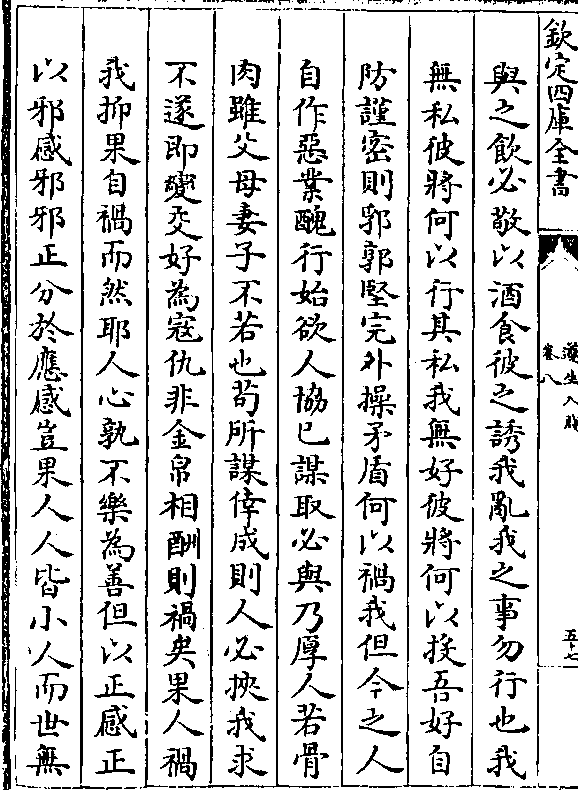 欽定四庫全書
遵生八牋
卷八
五十七
與之飲必敬以酒食彼之誘我亂我之事勿行也我
無私彼將何以行其私我無好彼將何以投吾好自
防謹密則郛郭堅完外操矛盾何以禍我但今之人
自作惡業醜行始欲人協已謀取必與乃厚人若骨
肉雖父母妻子不若也苟所謀倖成則人必挾我求
不遂即變交好為寇仇非金帛相酬則禍矣果人禍
我抑果自禍而然耶人心孰不樂為善但以正感正
以邪感邪邪正分於應感豈果人人皆小人而世無